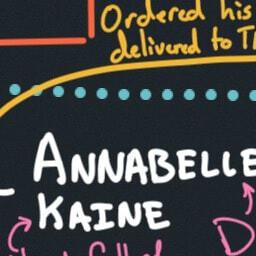 Ordered his
delivered to
ANNABELLE
KAINE